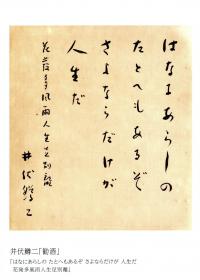 はなにあらしの
たとへもあるぞ
さよならだけが
人生だ
花發多風雨人生足別離
井伏鱒二
井伏鱒二「勧酒」
「はなにあらしの たとへもあるぞ さよならだけが 人生だ
花発多風雨人生足別離」